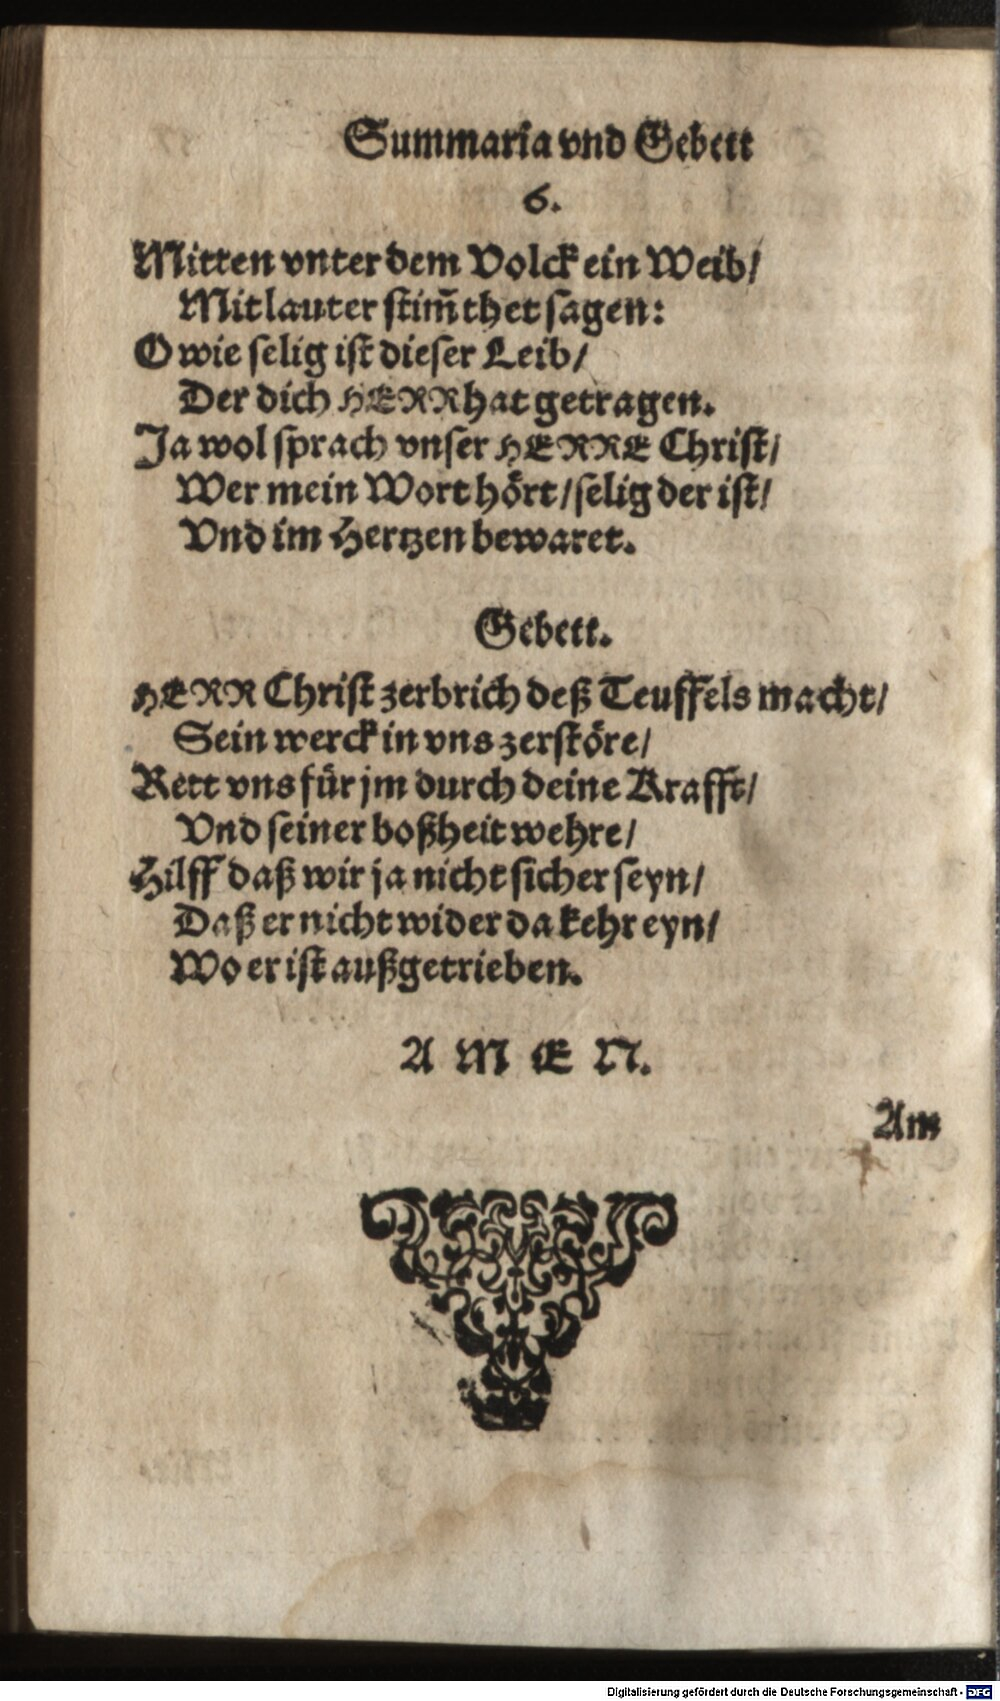 Summaria vnd Gebett
6.
Mitten vnter dem Volck ein Weib/
Mit lauter stim̄ thet sagen:
O wie selig ist dieser Leib/
Der dich HERR hat getragen.
Ja wol sprach vnser HERRE Christ/
Wer mein Wort hört/selig der ist/
Vnd im Hertzen bewaret.
Gebett.
HERR Christ zerbrich deß Teuffels macht/
Sein werck in vns zerstöre/
Rett vns für jm durch deine Krafft/
Vnd seiner boßheit wehre/
Hilff daß wir ja nicht sicher seyn/
Daß er nicht wider da kehr eyn/
Wo er ist außgetrieben.
A M E N.
Am
Digitalisierung gefördert durch die Deutsche Forschungsgemeinschaft - DFG